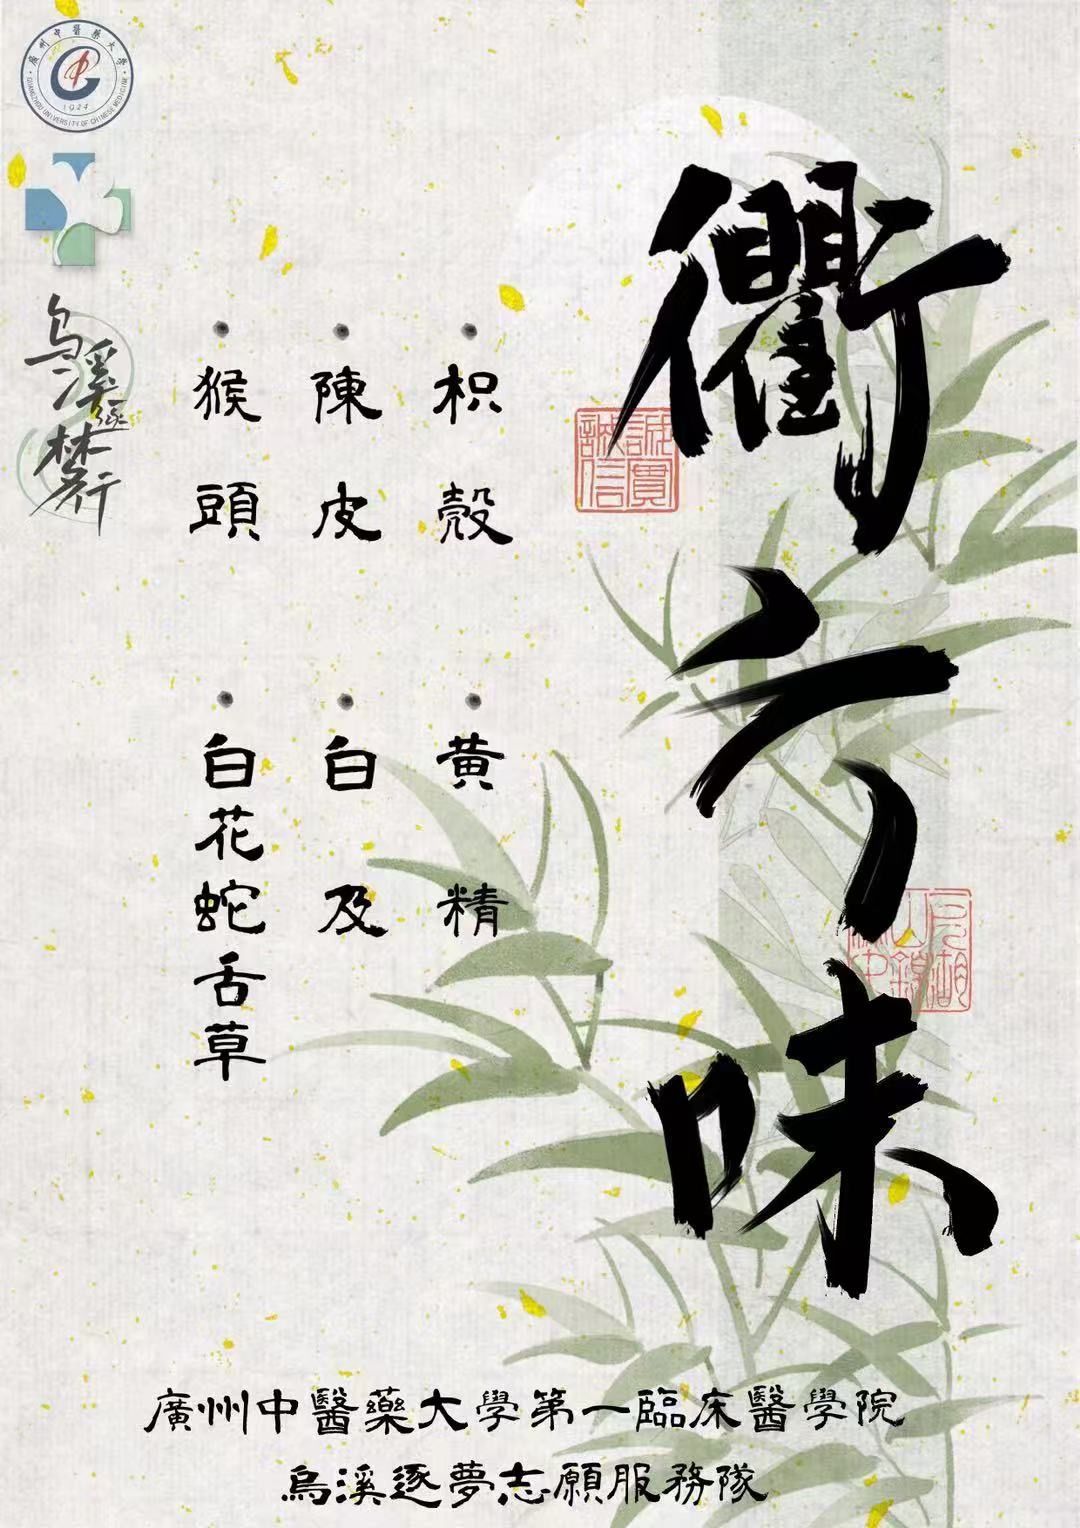 廣州中醫藥大學
GUANGZHOU UNIVERSITY OF CHINESE MEDICINE
1924
烏溪逐梦行
衢六味
枳殼
陳皮
猴頭
黄精
白及
白花蛇舌草
誠貫
誠信
廣州中醫藥大學第一臨床醫學院
烏溪逐夢志願服務隊